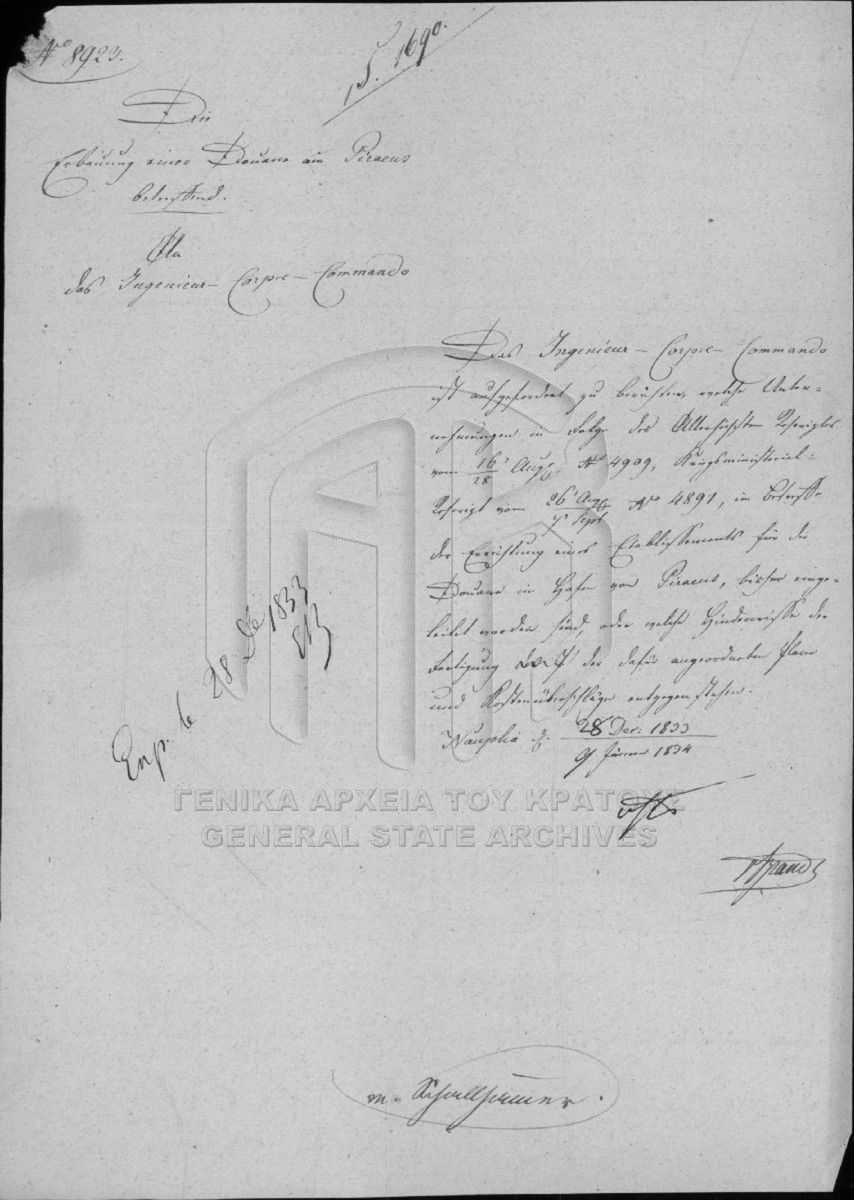 No 8923.
S. 1690.
Die
Erbauung einer Douane am Piraeus
betreffend.
An
das Ingenieur-Corps-Commando
Das Ingenieur-Corps-Commando
ist aufgefordert zu berichten, welche Unter-
nehmungen in Folge des Allerhöchsten Rescriptes
vom 16/28 Aug. No 4909, Kriegsministerial-
Rescript vom 26 Aug/7 Sept No 4891, in Betreffe
der Errichtung eines Etablissements für die
Douane im Hafen von Piraeus, bisher einge-
leitet worden sind, oder welche Hindernisse der
Fertigung der dafür angeordneten Plane
und Kostenüberschläge entgegenstehen.
Nauplia d. 28 Dec. 1833
9 Jänner 1834
Enp. le 28 De 1833
m. Schallhammer.
ΓΕΝΙΚΑ ΑΡΧΕΙΑ ΤΟΥ ΚΡΑΤΟΥΣ
GENERAL STATE ARCHIVES